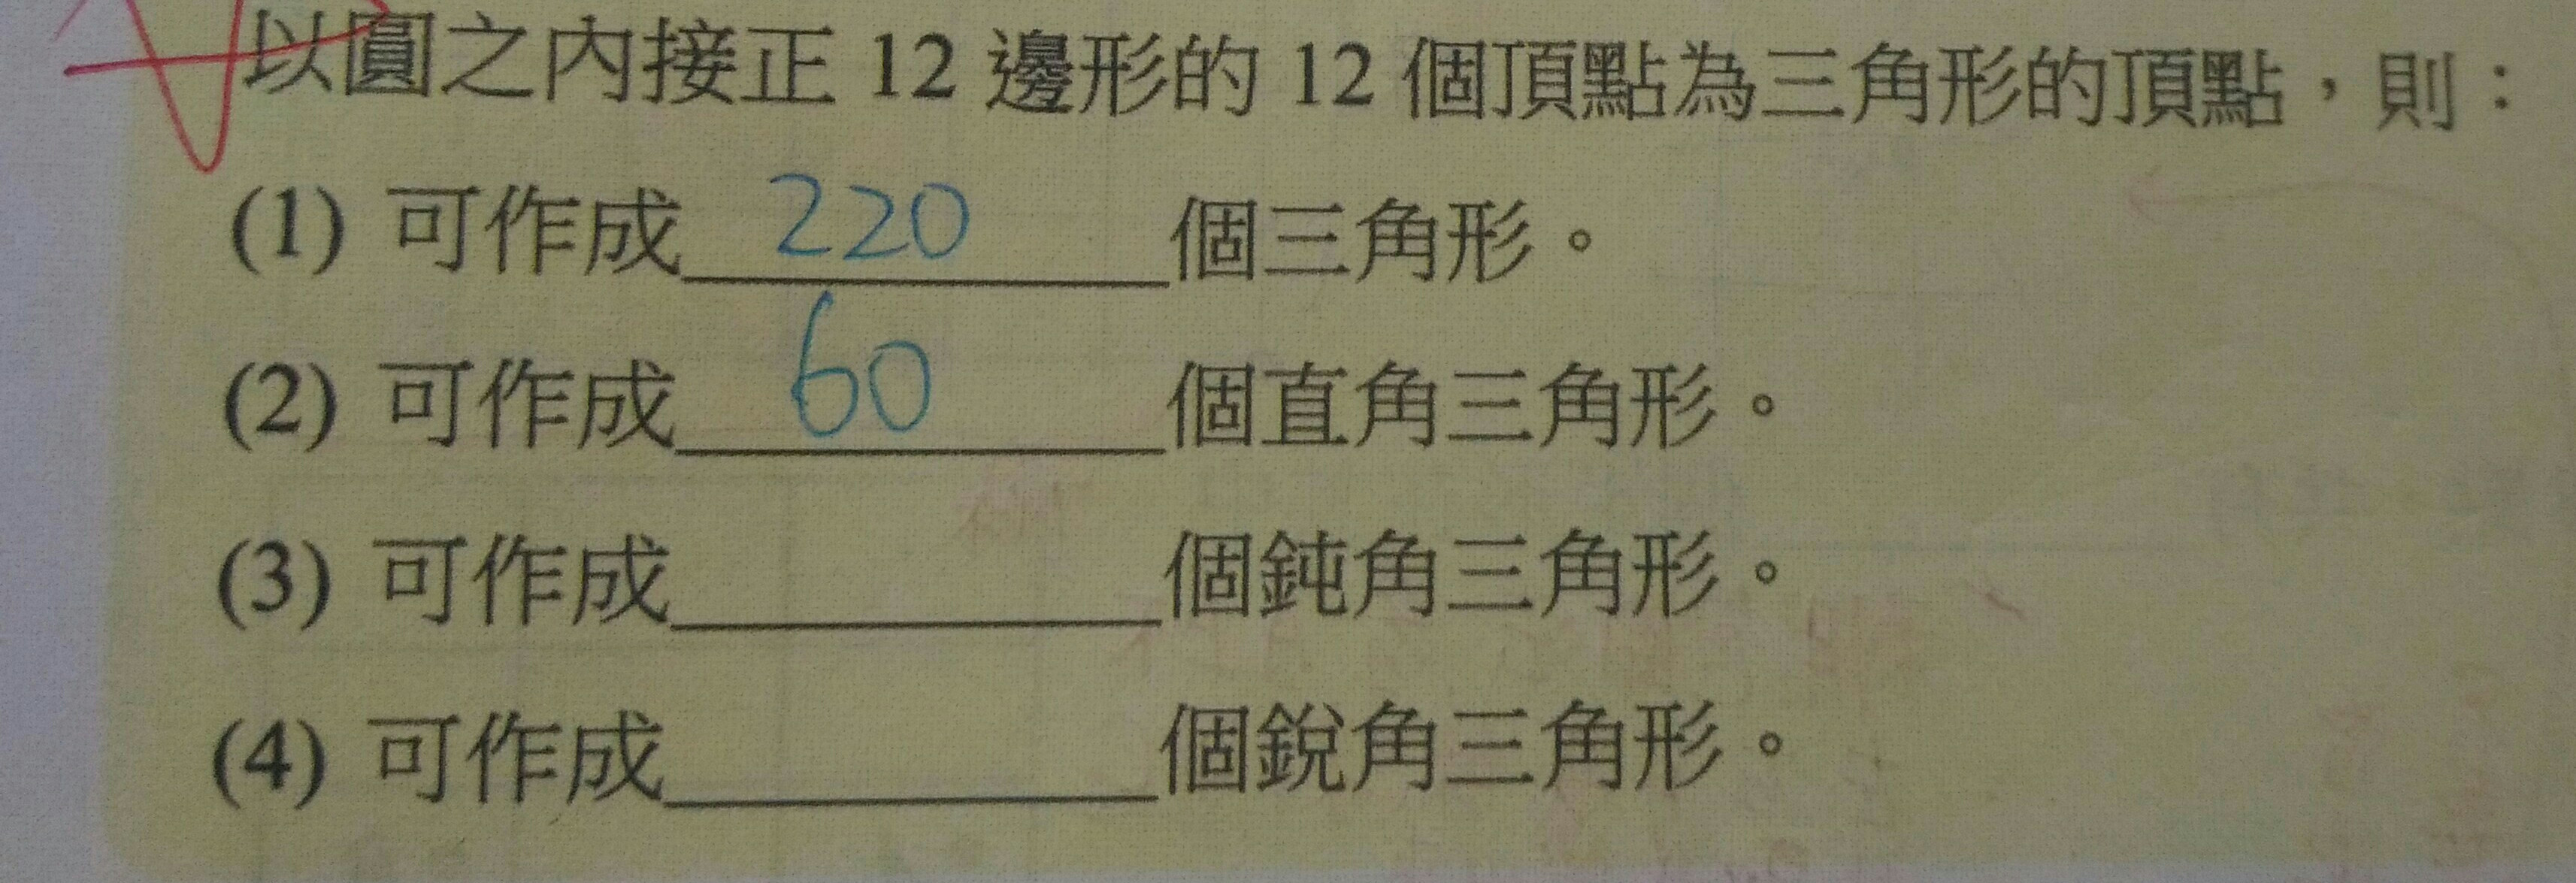 以圓之內接正 12 邊形的 12 個頂點為三角形的頂點，則：
(1) 可作成 220 個三角形。
(2) 可作成 60 個直角三角形。
(3) 可作成______個鈍角三角形。
(4) 可作成______個銳角三角形。